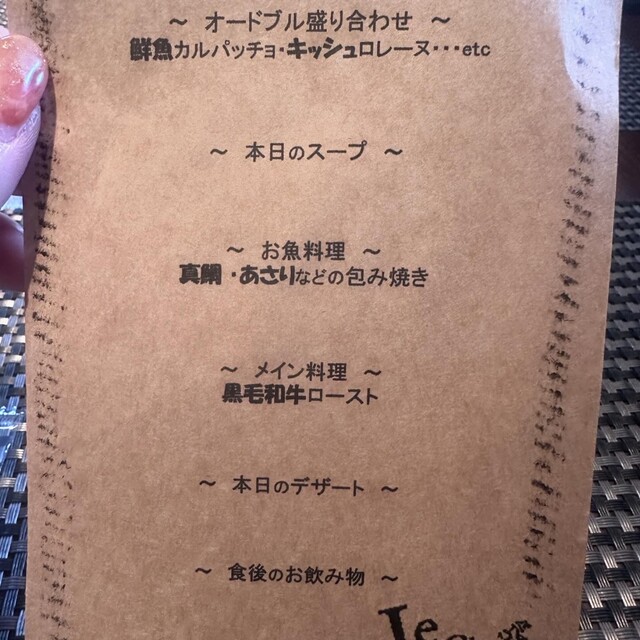 ～ オードブル盛り合わせ ～
鮮魚カルパッチョ・キッシュロレーヌ・・・etc
～ 本日のスープ ～
～ お魚料理 ～
真鯛・あさりなどの包み焼き
～ メイン料理 ～
黒毛和牛ロースト
～ 本日のデザート ～
～ 食後のお飲み物 ～